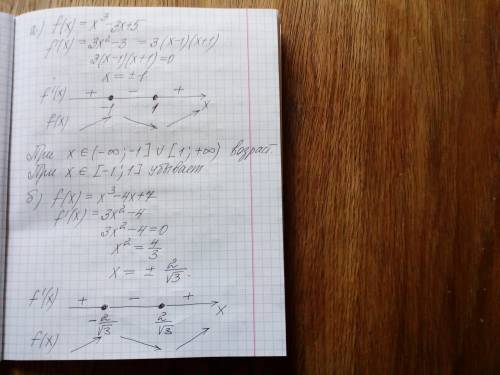 а) f(x) = x³-3x+5
f'(x) = 3x²-3 = 3(x-1)(x+1)
3(x-1)(x+1)=0
x = ±1
f'(x) + - +
-1 1 x
f(x)
При x ∈ (-∞; -1] ∪ [1; +∞) возраст.
При x ∈ [-1; 1] убывает
б) f(x) = x³-4x+7
f'(x) = 3x²-4
3x²-4=0
x² = 4/3
x = ± 2/√3.
f'(x) + - +
-2/√3 2/√3 x
f(x)